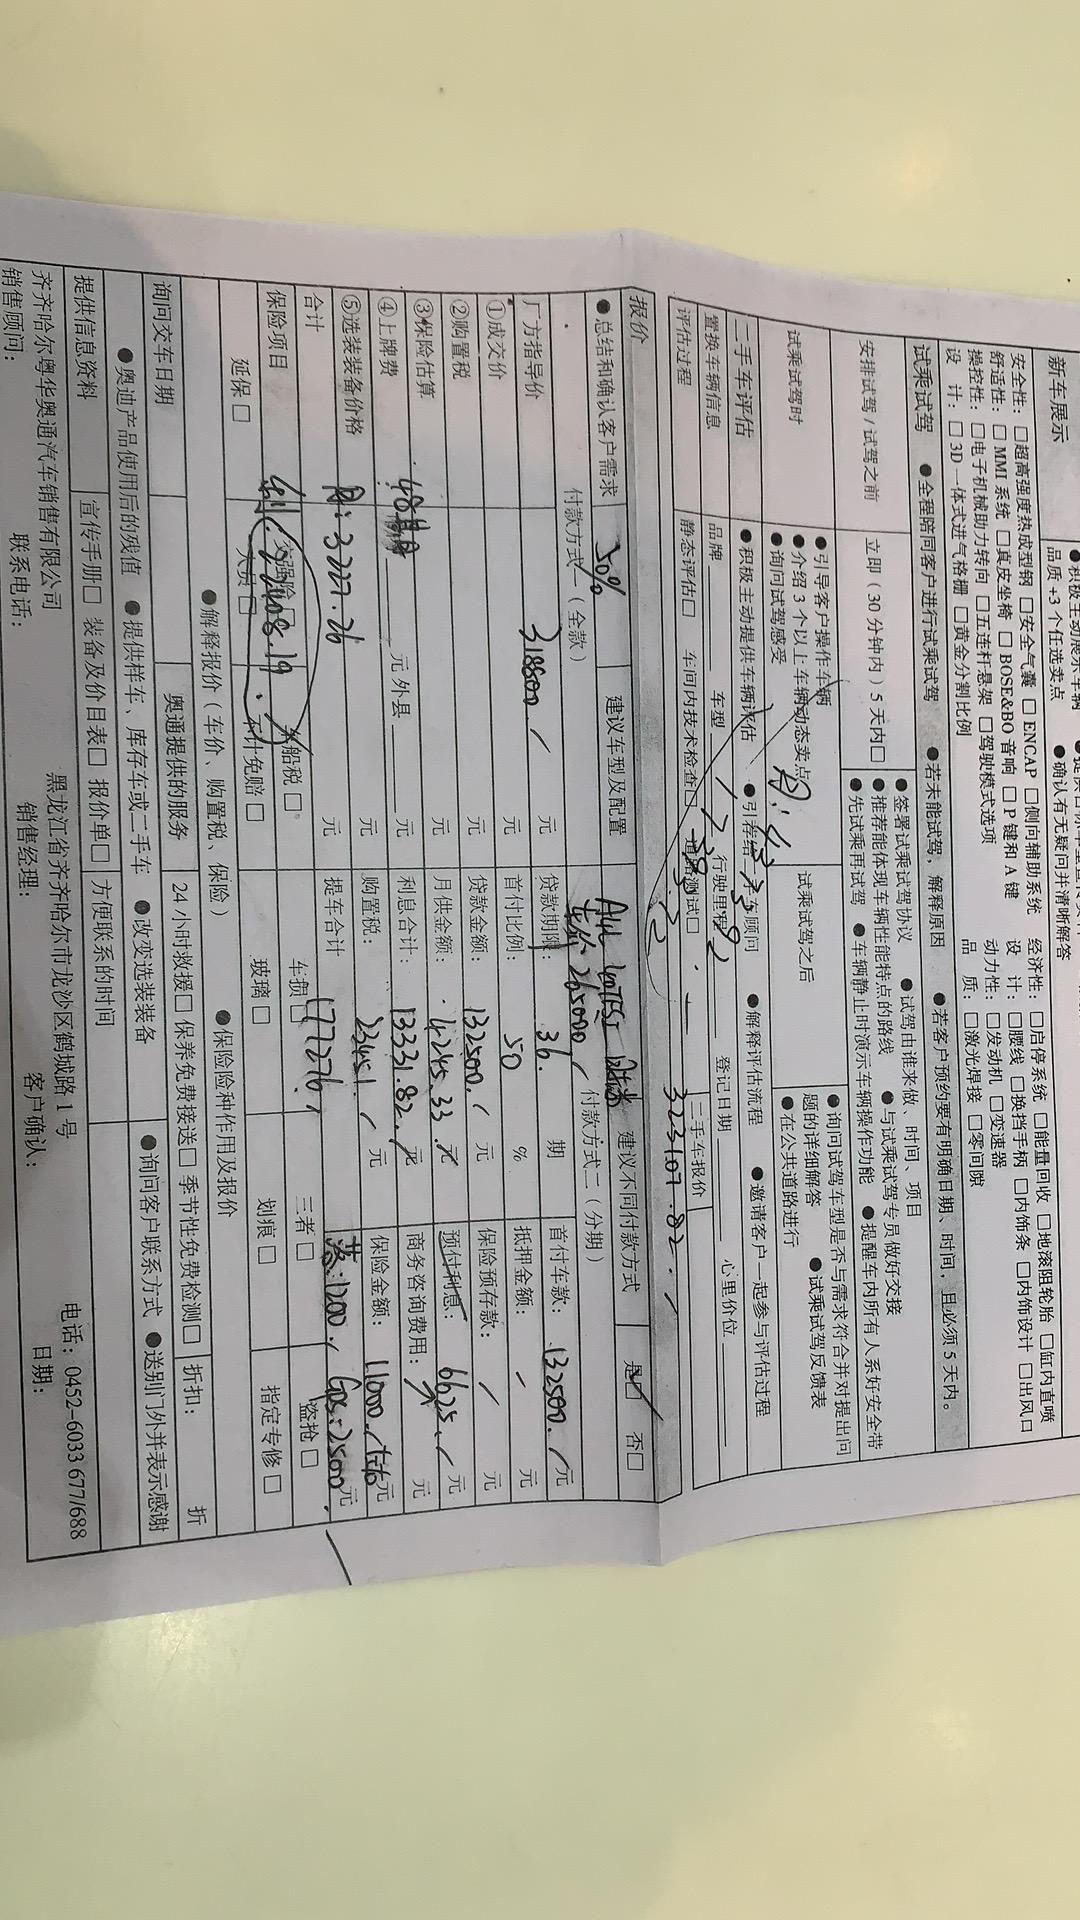 新车展示
●积极主动展示车辆
品质+3个任选卖点 ●确认有无疑问并清晰解答
安全性：□超高强度热成型钢 □安全气囊 □ENCAP □侧向辅助系统
舒适性：□MMI系统 □真皮座椅 □BOSE&BO音响 □P键和A键
操控性：□电子机械助力转向 □五连杆悬架 □驾驶模式选项
设 计：□3D一体式进气格栅 □黄金分割比例
经济性：□启停系统 □能量回收 □地滚阻轮胎 □缸内直喷
设 计：□腰线 □换挡手柄 □内饰条 □内饰设计 □出风口
动力性：□发动机 □变速器
品 质：□激光焊接 □零间隙
试乘试驾 ●全程陪同客户进行试乘试驾 ●若未能试驾，解释原因 ●若客户预约要有明确日期、时间，且必须5天内。
安排试驾/试驾之前 立即（30分钟内）5天内□
●签署试乘试驾协议 ●试驾由谁来做、时间、项目
●推荐能体现车辆性能特点的路线 ●与试乘试驾专员做好交接
●先试乘再试驾 ●车辆静止时演示车辆操作功能 ●提醒车内所有人系好安全带
试乘试驾时
●引导客户操作车辆
●介绍3个以上车辆动态卖点
●询问试驾感受
试乘试驾之后
●询问试驾车型是否与需求符合并对提出问
题的详细解答 ●试乘试驾反馈表
●在公共道路进行
二手车评估 ●积极主动提供车辆评估 ●引荐给二手车顾问 ●解释评估流程 ●邀请客户一起参与评估过程
置换车辆信息 品牌 车型 行驶里程 登记日期 心里价位
评估过程 静态评估□ 车间内技术检查□ 道路测试□ 二手车报价
323107.82
报价
●总结和确认客户需求 50% 建议车型及配置 建议不同付款方式 是□ 否□
付款方式一（全款） 车价:265000 付款方式二（分期）
厂方指导价 318800 元 贷款期限： 36 期 首付车款： 132500 元
①成交价 元 首付比例： 50 % 抵押金额： 元
②购置税 元 贷款金额： 132500 元 保险预存款： 元
③保险估算 元 月供金额： 4245.33 元 预付利息： 6625 元
④上牌费 元外县 元 利息合计： 13331.82 元 商务咨询费用： 元
⑤选装装备价格 元 购置税： 23451 元 保险金额： 11000 元
合计 月:3227.26 元 提车合计 177276 落:1200 GPS:2500 元
保险项目 交强险□ 车船税□ 车损□ 三者□ 盗抢□
延保□ 人员□ 不计免赔□ 玻璃□ 划痕□ 指定专修□
●解释报价（车价、购置税、保险） ●保险险种作用及报价
询问交车日期 奥通提供的服务 24小时救援□ 保养免费接送□ 季节性免费检测□ 折扣： 折
●奥迪产品使用后的残值 ●提供样车、库存车或二手车 ●改变选装装备 ●询问客户联系方式 ●送别门外并表示感谢
提供信息资料 宣传手册□ 装备及价目表□ 报价单□ 方便联系的时间
齐齐哈尔粤华奥通汽车销售有限公司 黑龙江省齐齐哈尔市龙沙区鹤城路1号 电话：0452-6033 677/688
销售顾问： 联系电话： 销售经理： 客户确认： 日期：